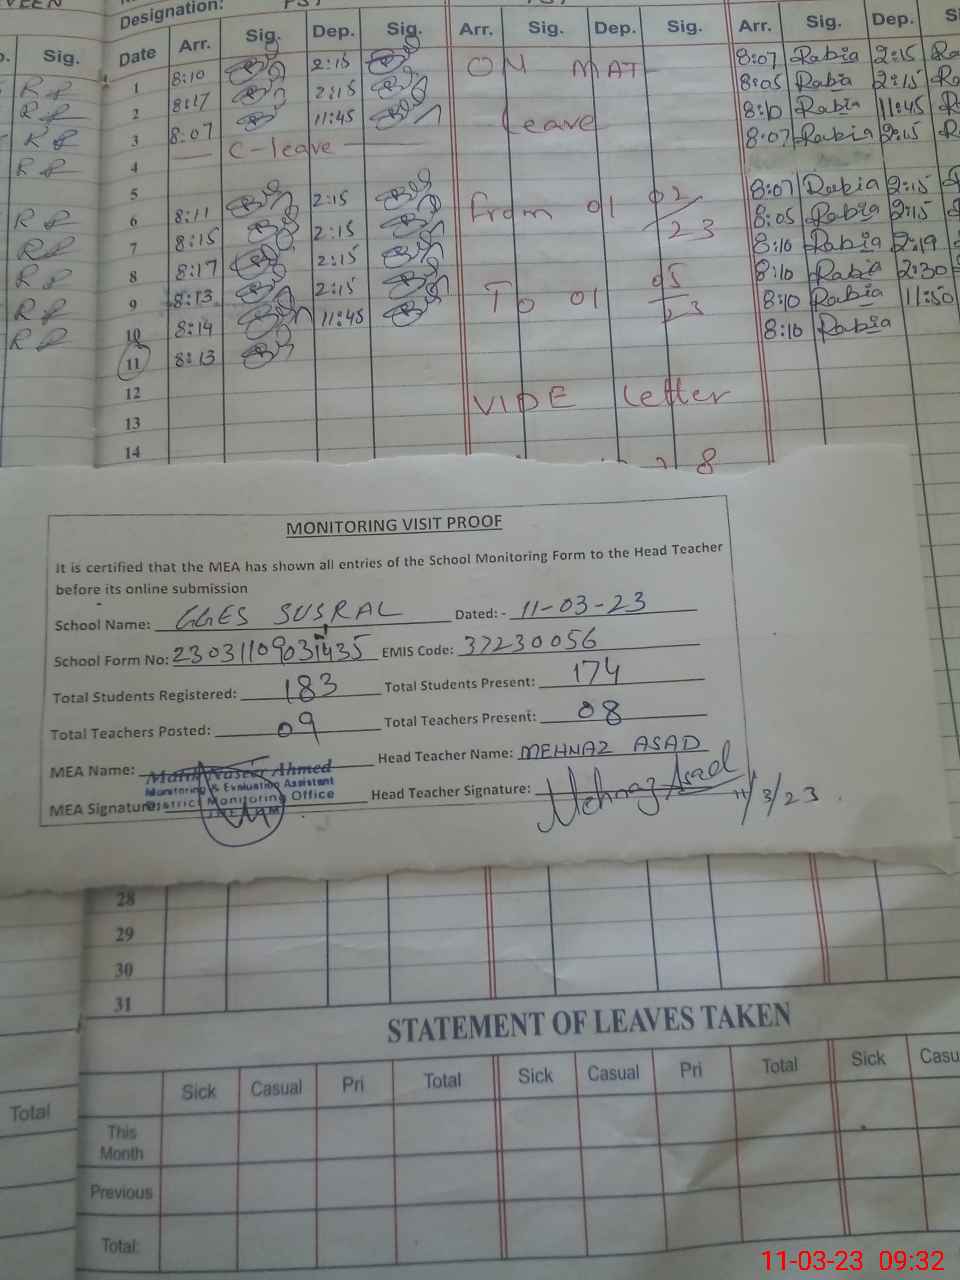 Designation:
Sig. Date Arr. Sig. Dep. Sig. Arr. Sig. Dep. Sig. Arr. Sig. Dep.
1 8:10 2:15 ON MAT 8:07 Rabia 2:15
2 8:17 2:15 8:05 Rabia 2:15
3 8:07 11:45 leave 8:10 Rabia 11:45
4 C-leave 8:07 Rabia 2:15
5
6 8:11 2:15 From 01 02 8:07 Rabia 2:15
7 8:15 2:15 23 8:05 Rabia 2:15
8 8:17 2:15 8:10 Rabia 2:19
9 8:13 2:15 To 01 05 8:10 Rabia 2:30
10 8:14 11:45 23 8:10 Rabia 11:50
11 8:13 8:10 Rabia
12
13 VIDE letter
14
8
MONITORING VISIT PROOF
It is certified that the MEA has shown all entries of the School Monitoring Form to the Head Teacher
before its online submission
School Name: GGES SUSRAL Dated:- 11-03-23
School Form No: 23031109031435 EMIS Code: 37230056
Total Students Registered: 183 Total Students Present: 174
Total Teachers Posted: 09 Total Teachers Present: 08
MEA Name: Malik Naseer Ahmed Head Teacher Name: MEHNAZ ASAD
Monitoring & Evaluation Assistant
MEA Signature: District Monitoring Office Head Teacher Signature: Mehnaz Asad
JHELUM
11/3/23
28
29
30
31
STATEMENT OF LEAVES TAKEN
Sick Casual Pri Total Sick Casual Pri Total Sick Casu
Total
This
Month
Previous
Total:
11-03-23 09:32